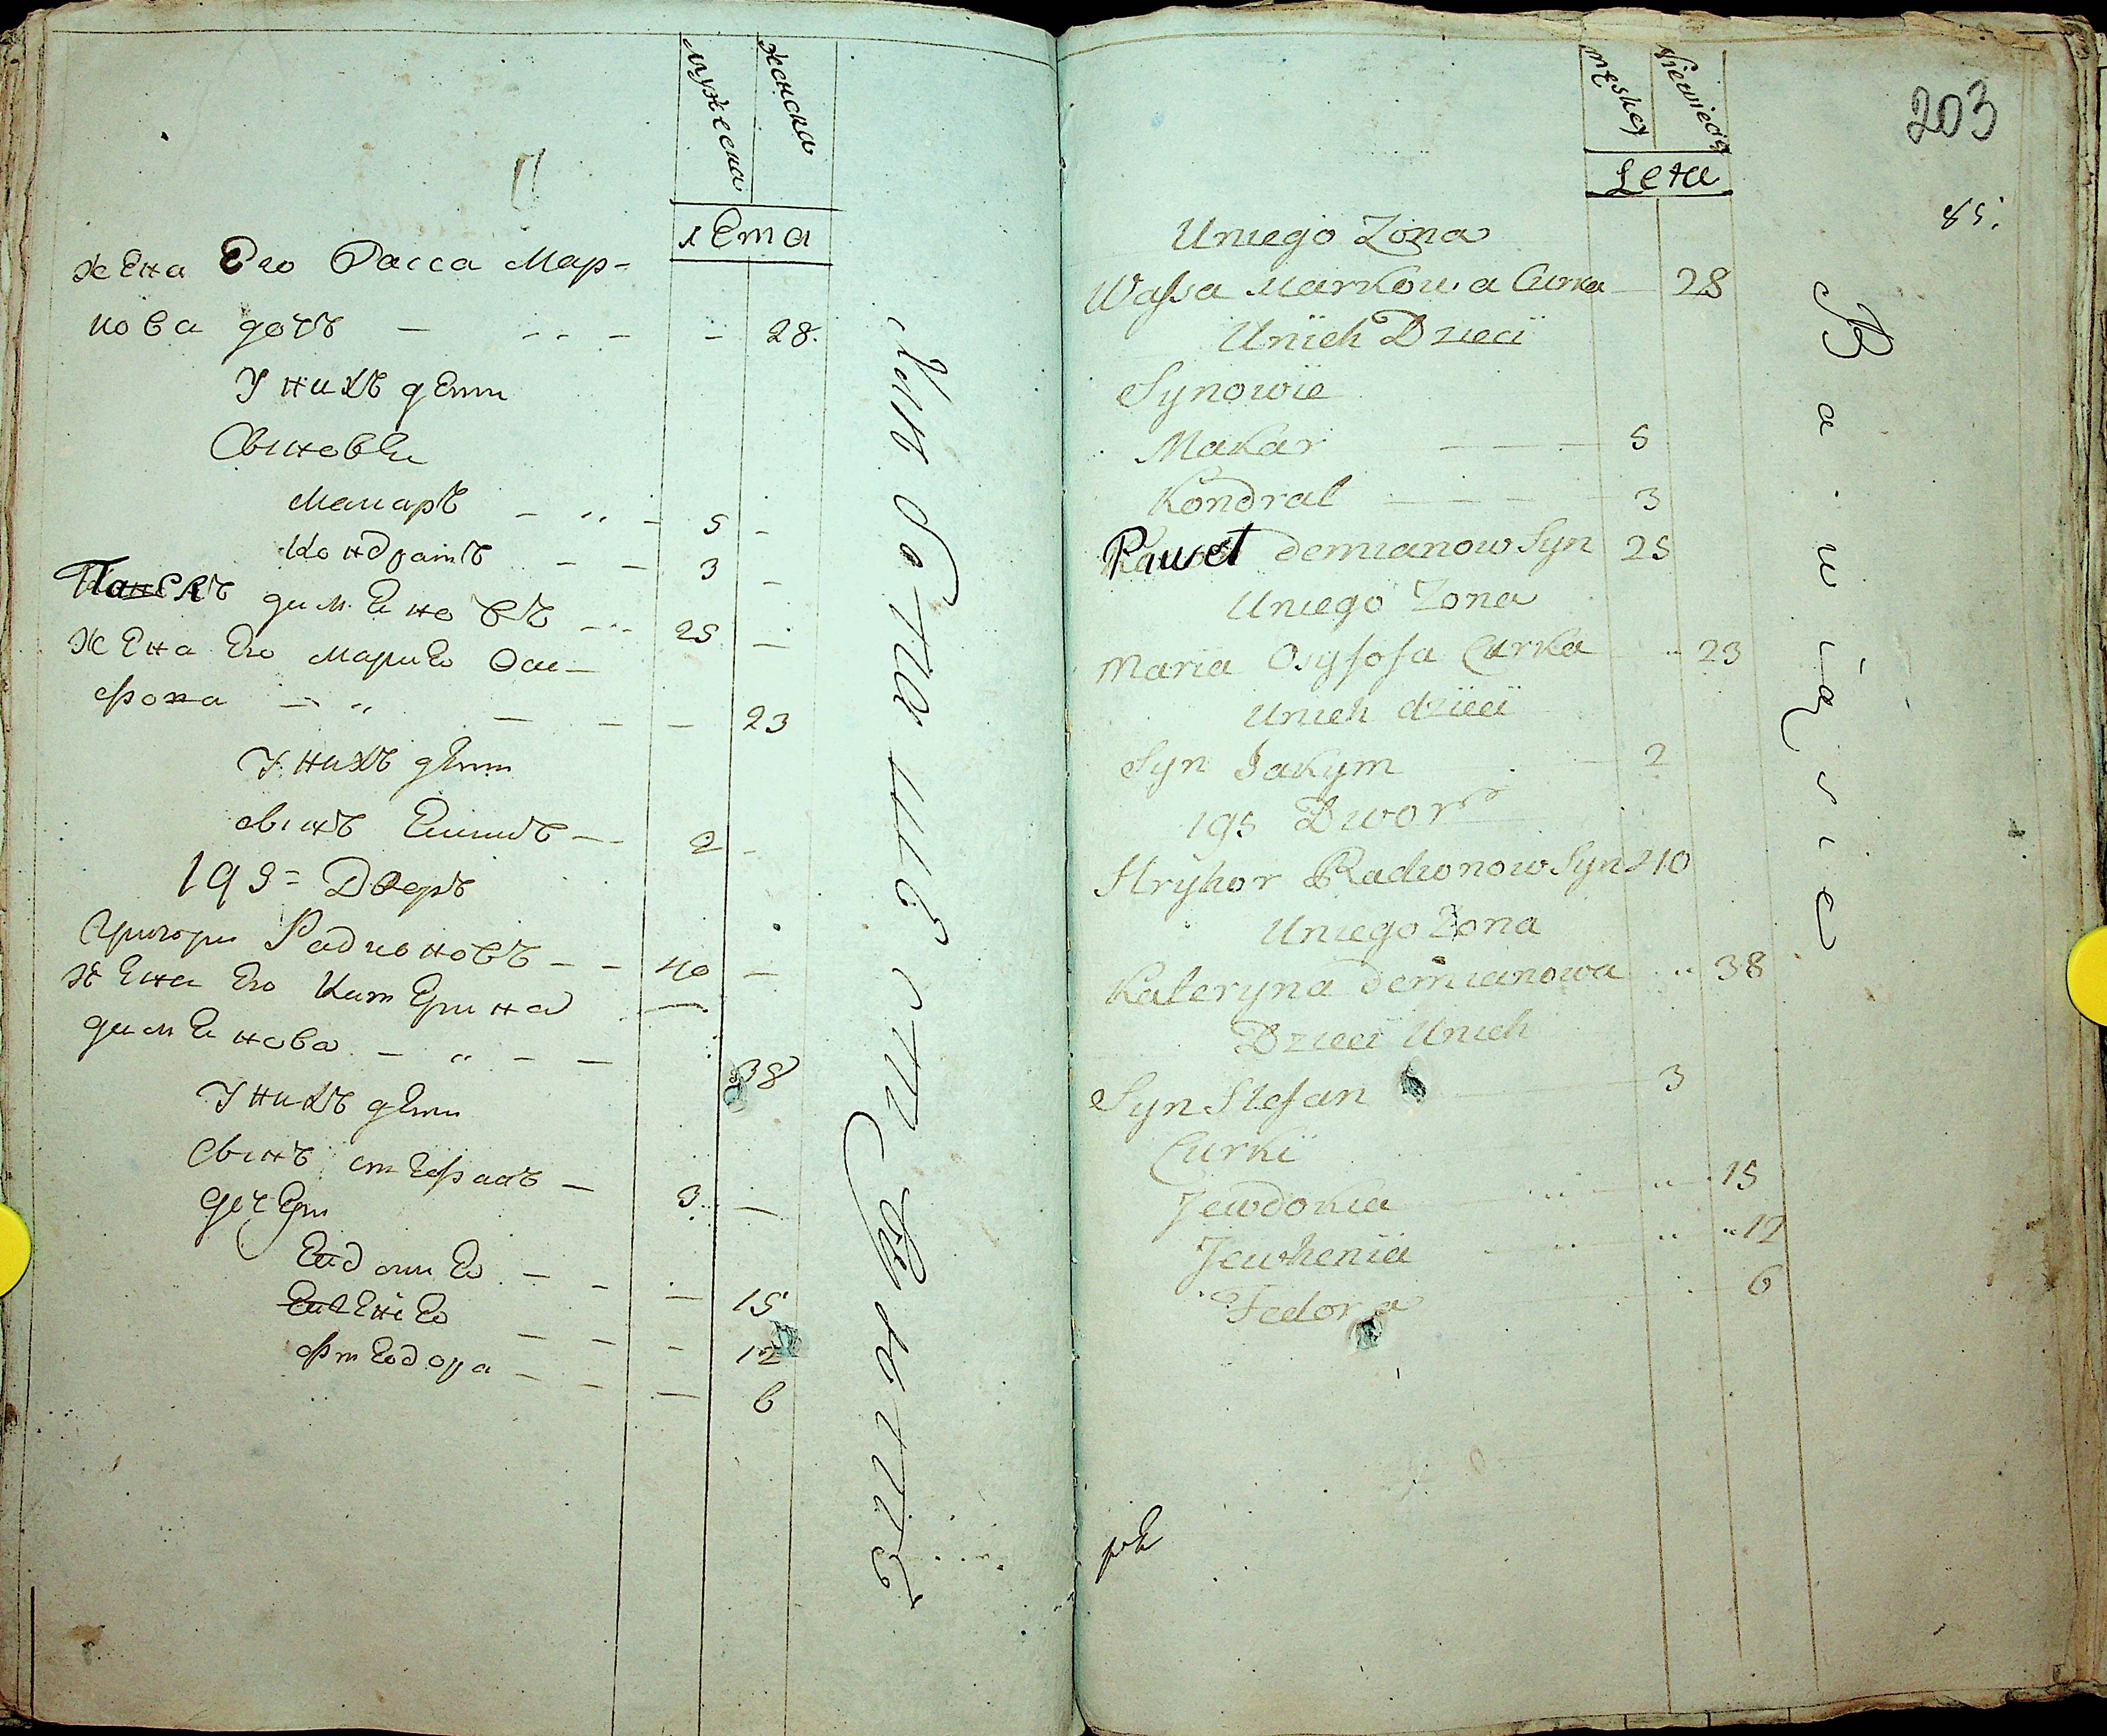 мужеска
женска
лета
жена Его Васса Мар-
кова дочь — 28.
У нихъ дети
Сыновья
Макаръ — 5 —
Кондратъ — 3 —
Павелъ демиановъ — 25 —
жена Его мариѧ Оси-
фова — 23
У нихъ дети
сынъ Екимъ — 2 —
195 = Дворъ
Григори Радионовъ — 40 —
жена Его Катерина —
демианова — 38
У нихъ дети
сынъ стефанъ — 3 —
дочери
Евдокиѧ — 15
Евгениѧ — 12
фтеодора — 6
męskey
Niewiecia
Leta
203
85.
Uniego Zona
Wassa Markowa Curka — 28
Unich Dzieci
Synowie
Makar — 5
Kondrat — 3
Pawel demianow Syn 25
Uniego Zona
Maria Osyfofa Curka 23
Unich dzieci
Syn Jakym — 2
195 Dwor
Hryhor Radionow Syn 40
Uniego Zona
Kateryna demianowa 38
Dzieci Unich
Syn Stefan — 3
Curki
Jewdokia — 15
Jewhenia — 12
Fedora — 6
Bawiąsie